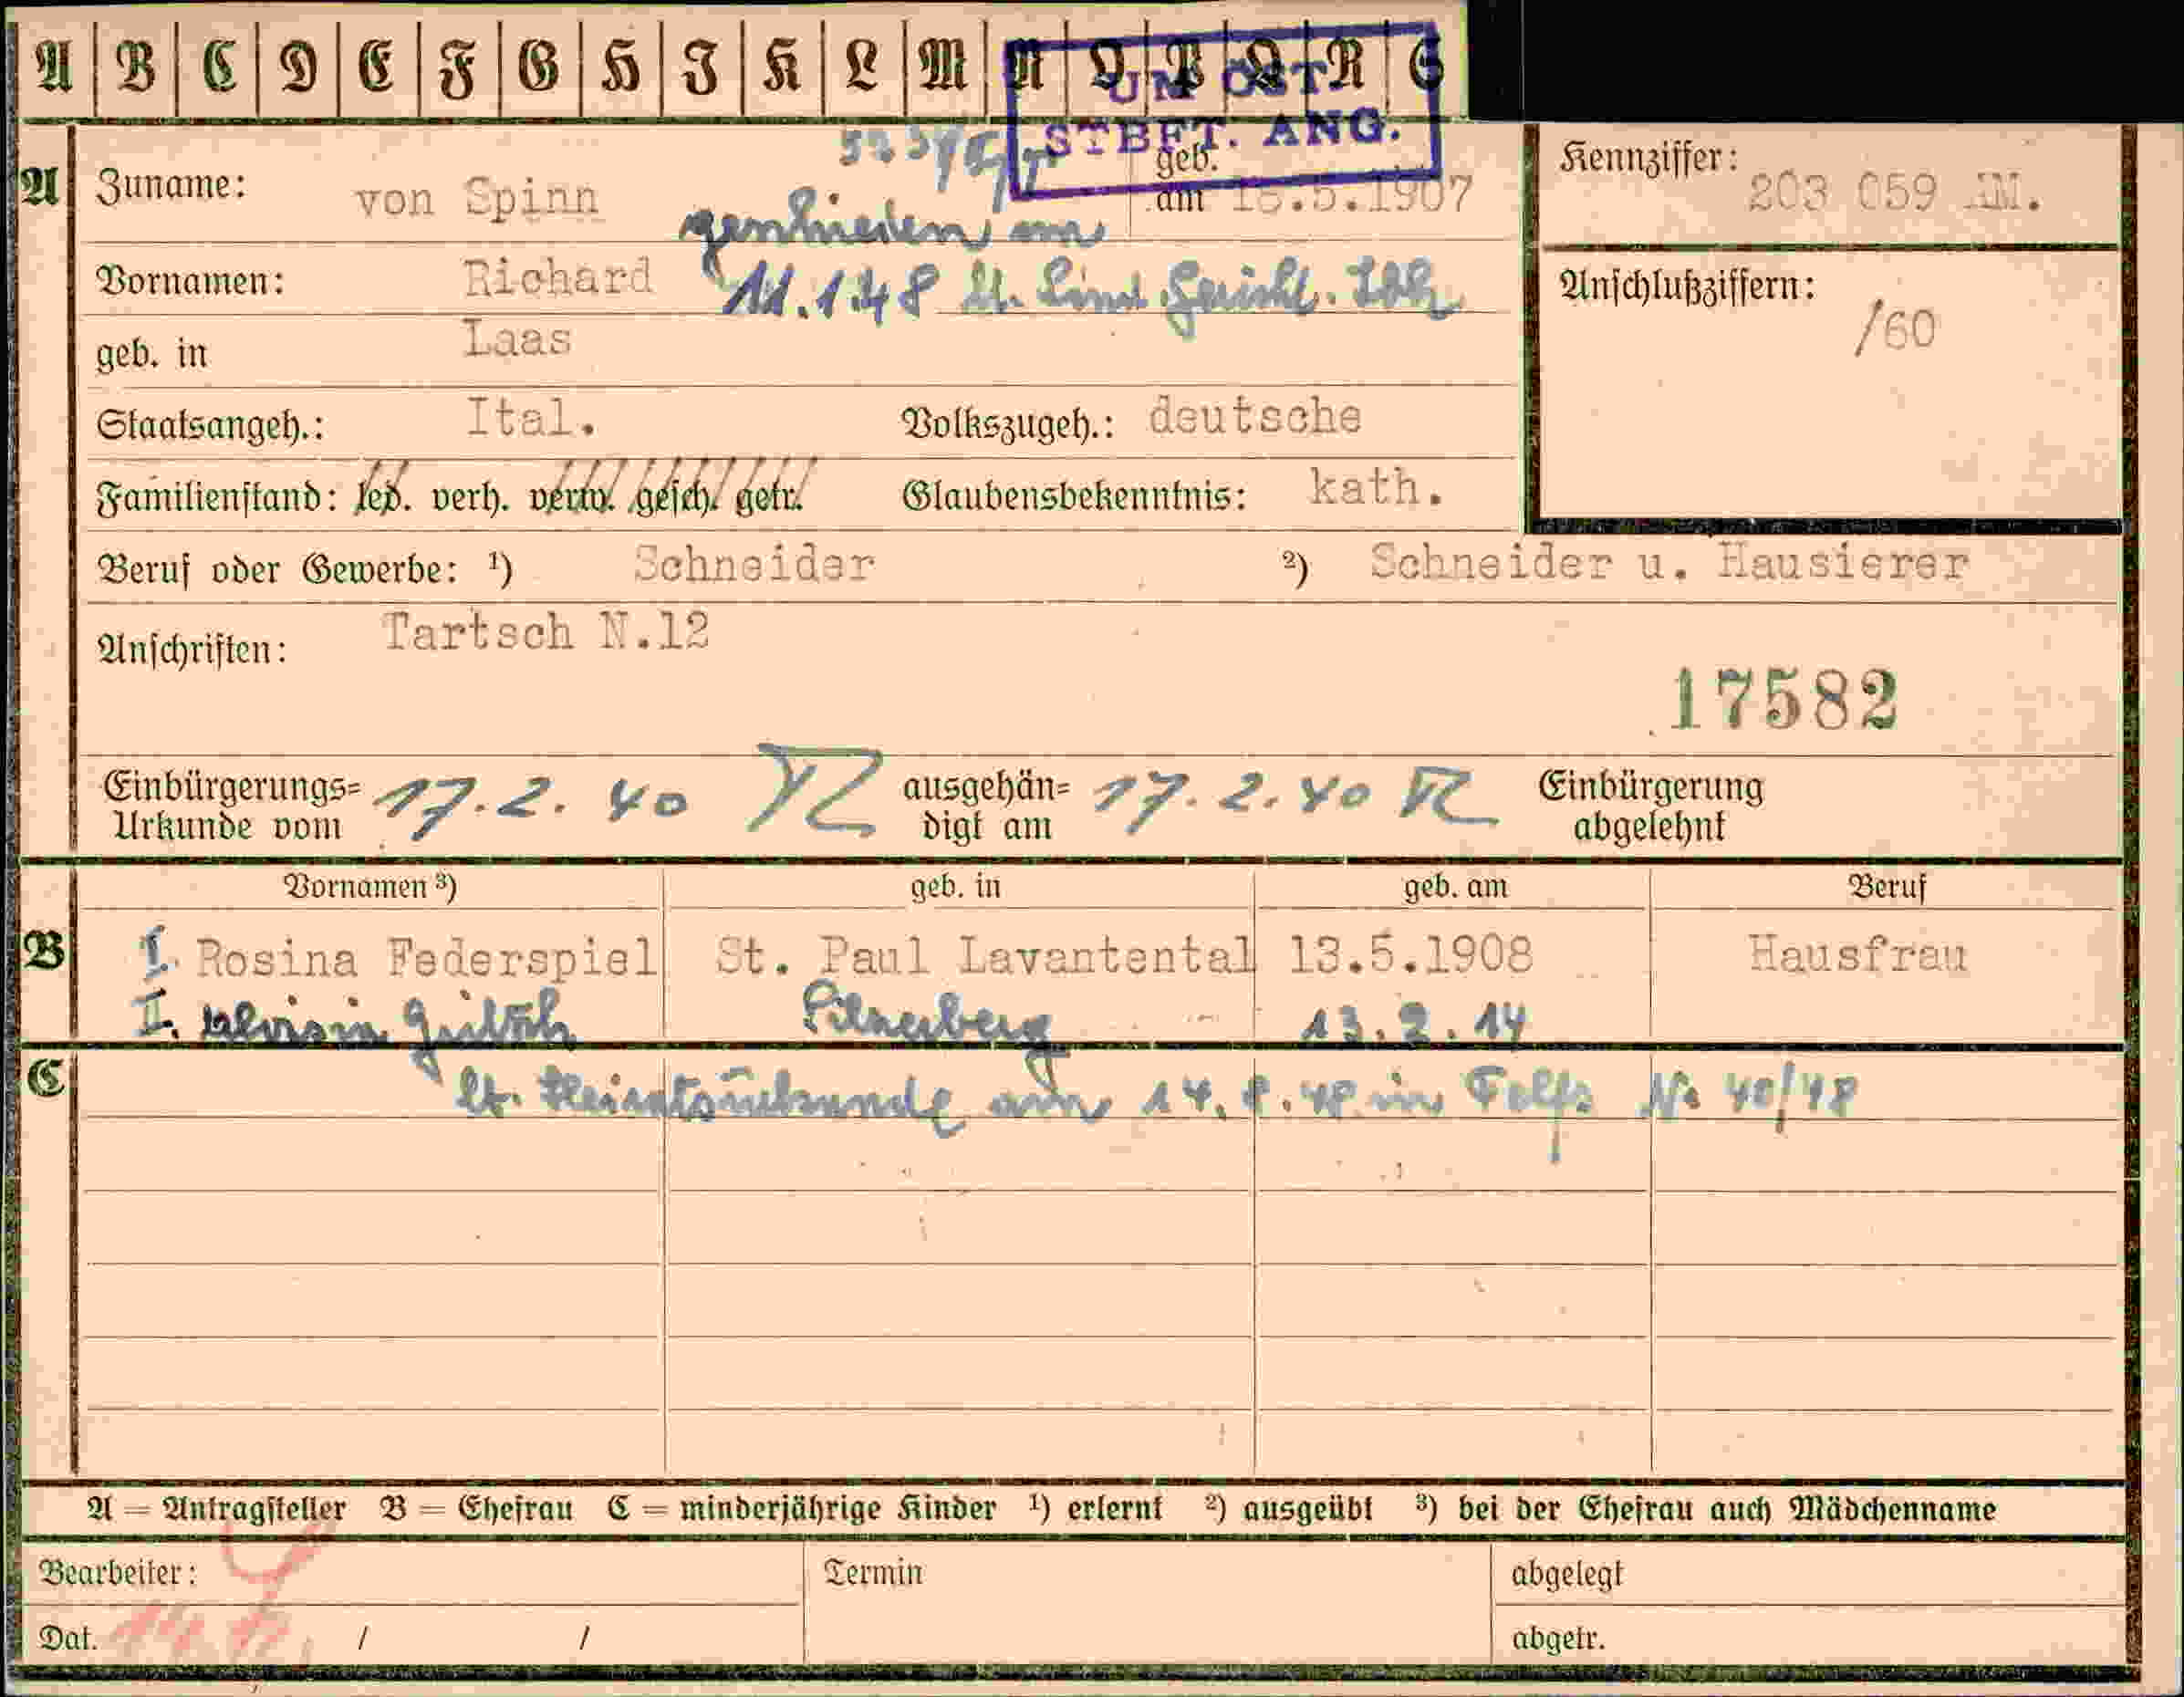 A B C D E F G H J K L M N O P Q R S
UM ÖST.
STBFT. ANG.
A Zuname: von Spinn geb. am .5.1907 Kennziffer: 203 059 IM.
geschieden am
Vornamen: Richard 11.1.48 lt. Gericht. Anschlußziffern:
/60
geb. in Laas
Staatsangeh.: Ital. Volkszugeh.: deutsche
Familienstand: led. verh. verw. gesch. getr. Glaubensbekenntnis: kath.
Beruf oder Gewerbe: ¹) Schneider ²) Schneider u. Hausierer
Anschriften: Tartsch N.12
17582
Einbürgerungs= Urkunde vom 17.2.40 ausgehän= digt am 17.2.40 Einbürgerung abgelehnt
Vornamen ³) geb. in geb. am Beruf
B I. Rosina Federspiel St. Paul Lavantental 13.5.1908 Hausfrau
II. 13.2.14
C
lt. Heiratsurkunde am 14.8.48 in Telfs No 40/48
A = Antragsteller B = Ehefrau C = minderjährige Kinder ¹) erlernt ²) ausgeübt ³) bei der Ehefrau auch Mädchenname
Bearbeiter: Termin abgelegt
Dat. / / abgetr.